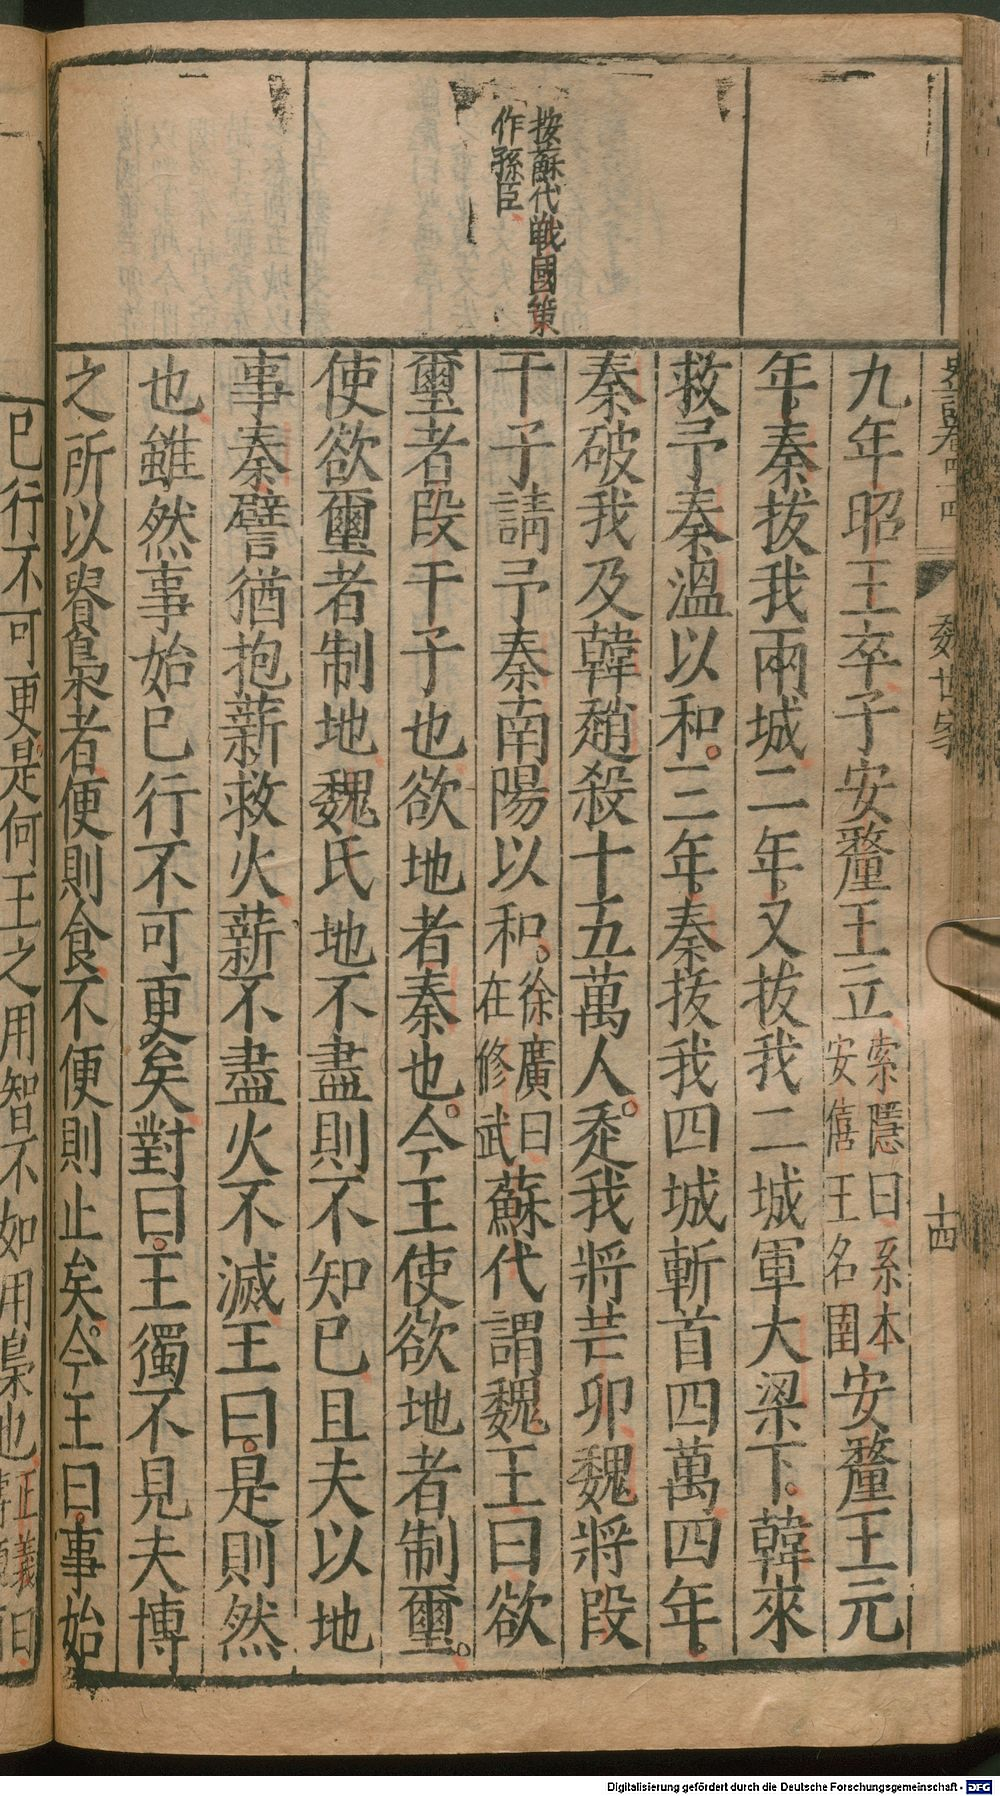 按蘇代戰國策
作孫臣
史記卷四十四
魏世家
十四
九年昭王卒子安釐王立
索隱曰系本
安僖王名圉
安釐王元
年秦拔我兩城二年又拔我二城軍大梁下韓來
救予秦溫以和三年秦拔我四城斬首四萬四年
秦破我及韓趙殺十五萬人走我將芒卯魏將段
干子請予秦南陽以和
徐廣曰
在修武
蘇代謂魏王曰欲
璽者段干子也欲地者秦也今王使欲地者制璽
使欲璽者制地魏氏地不盡則不知已且夫以地
事秦譬猶抱薪救火薪不盡火不滅王曰是則然
也雖然事始已行不可更矣對曰王獨不見夫博
之所以貴梟者便則食不便則止矣今王曰事始
已行不可更是何王之用智不如用梟也
正義曰
Digitalisierung gefördert durch die Deutsche Forschungsgemeinschaft - DFG